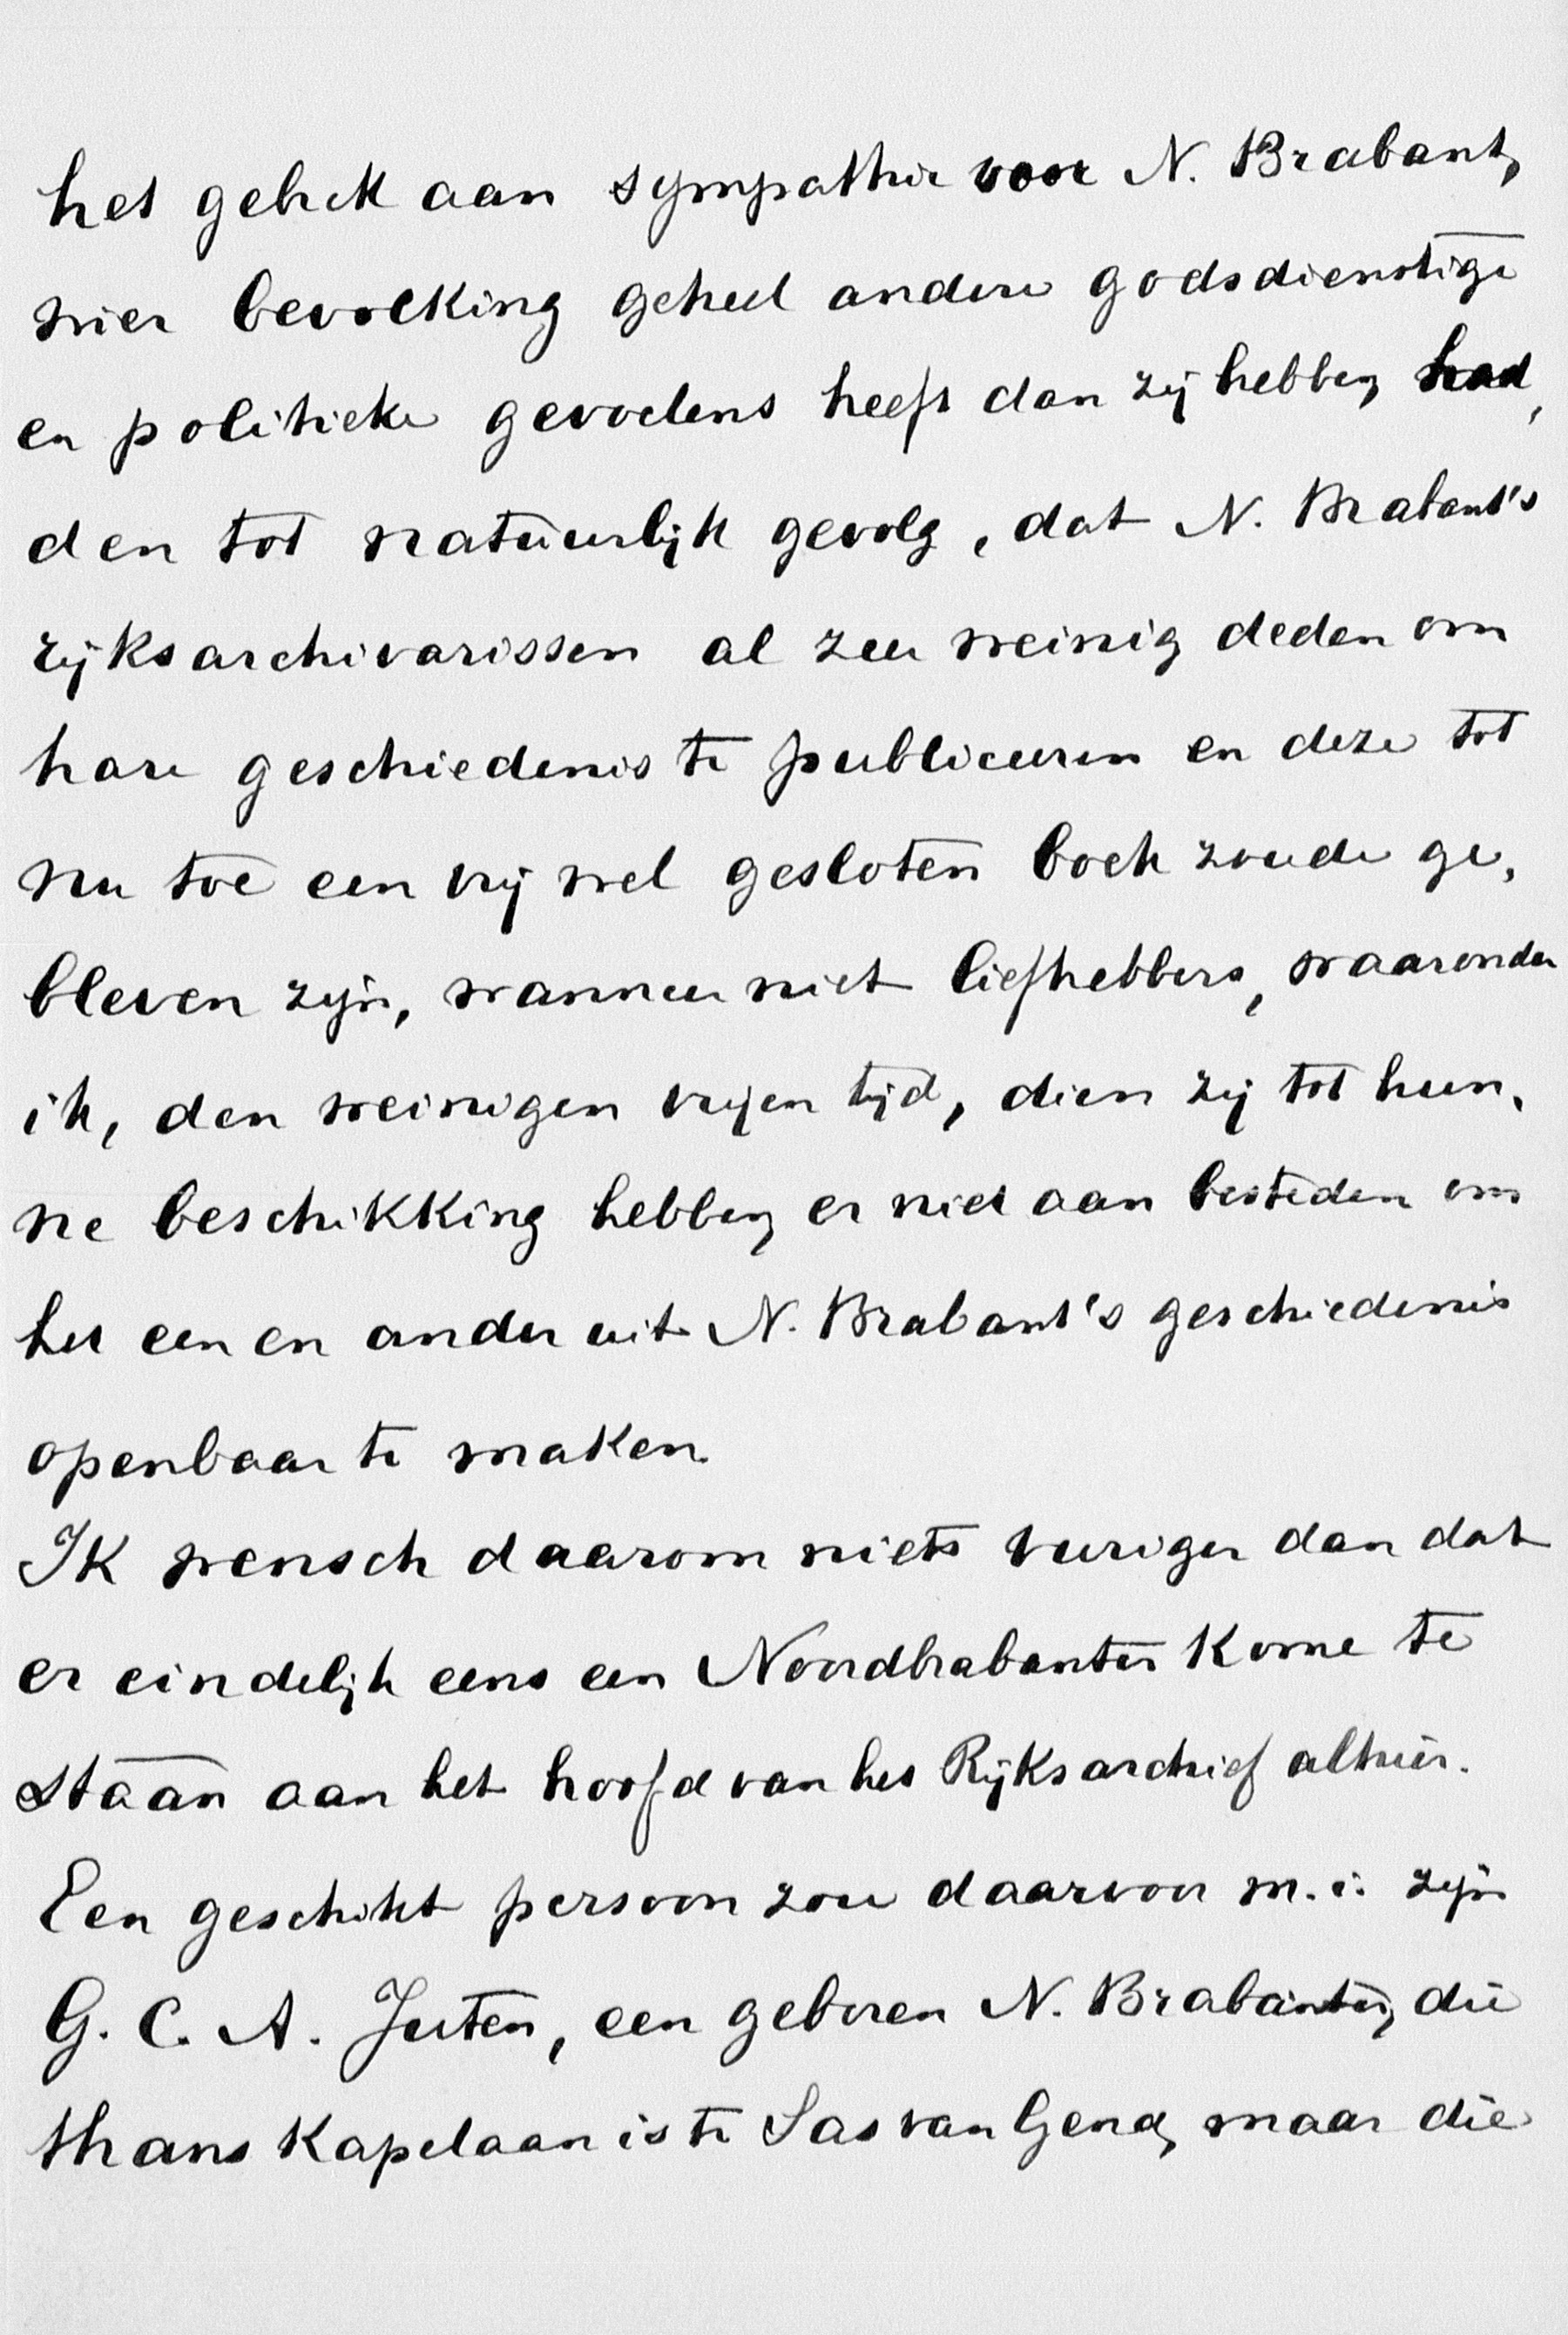 het gebrek aan sympathie voor N. Brabant,
wier bevolking geheel andere godsdienstige
en politieke gevoelens heeft dan zij hebben had,
den tot natuurlijk gevolg, dat N. Brabant's
rijksarchivarissen al zeer weinig deden om
hare geschiedenis te publiceeren en deze tot
nu toe een vrij wel gesloten boek zoude ge,
bleven zijn, wanneer niet liefhebbers, waaronder
ik, den weinigen vrijen tijd, dien zij tot hun,
ne beschikking hebben er niet aan besteden om
het een en ander uit N. Brabant's geschiedenis
openbaar te maken.
Ik wensch daarom niets vuriger dan dat
er eindelijk eens een Noordbrabanter kome te
staan aan het hoofd van het Rijksarchief alhier.
Een geschikt persoon zou daarvoor m. i. zijn
G. C. A. Juten, een geboren N. Brabanter, die
thans kapelaan is te Sas van Gend, maar die